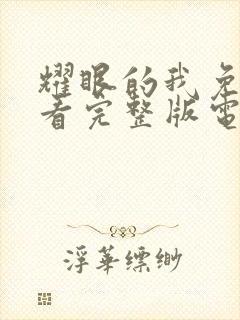 耀眼的我免
看完整版電
浮華縹緲